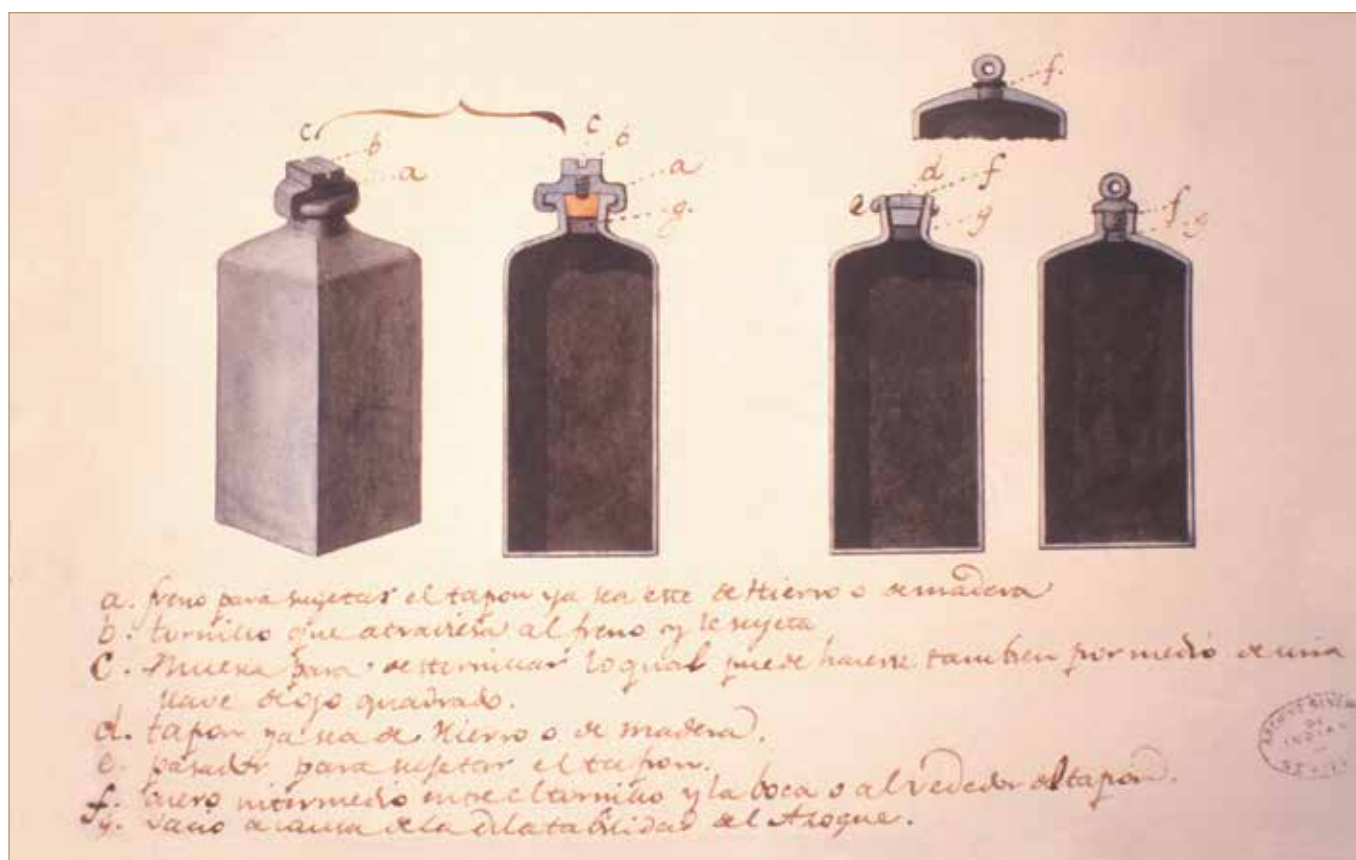 c
b
a
c
b
a
g.
f.
d
f
e
g
f
g
a. freno para sujetar el tapon ya sea este de Hierro o de madera
b. tornillo que atraviesa al freno y le sujeta
c. Muesca para destornillar lo qual puede hacerse tambien por medio de una
llave de ojo quadrado.
d. tapon ya sea de Hierro o de madera.
e. pasador para sujetar el tapon.
f. cuero intermedio entre el tornillo y la boca o al rededor del tapon.
g. vacio a causa de la dilatabilidad del Azogue.
ARCHIVO GENERAL
DE
INDIAS
SEVILLA